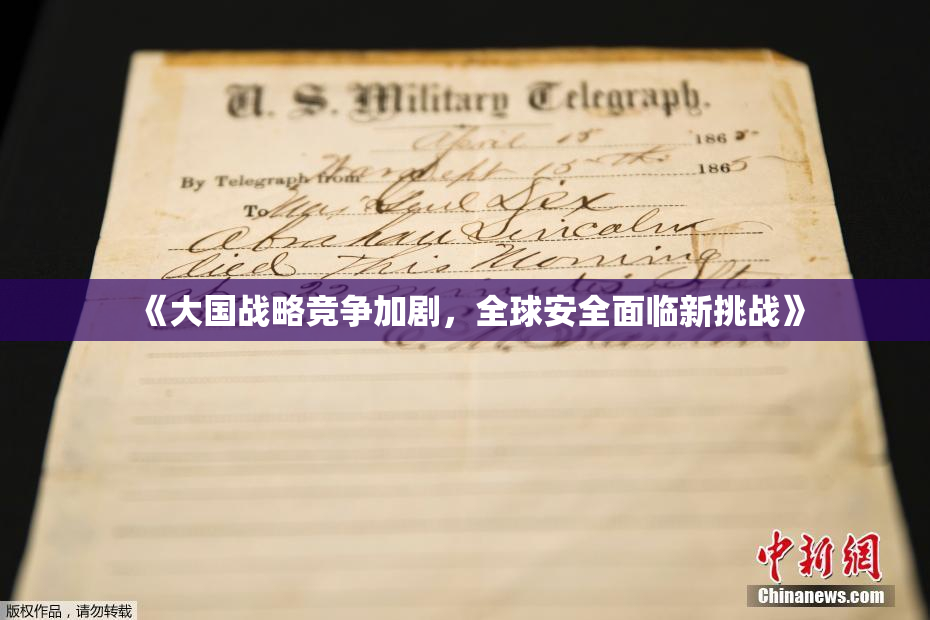 U. S. Military Telegraph.
April 15 1865
By Telegraph from War Dept 15th 1865
To Maj Genl Dix
Abraham Lincoln
died This Morning
at 22 minutes after
《大国战略竞争加剧，全球安全面临新挑战》
E. M. Stanton
中新網
Chinanews.com
版权作品，请勿转载